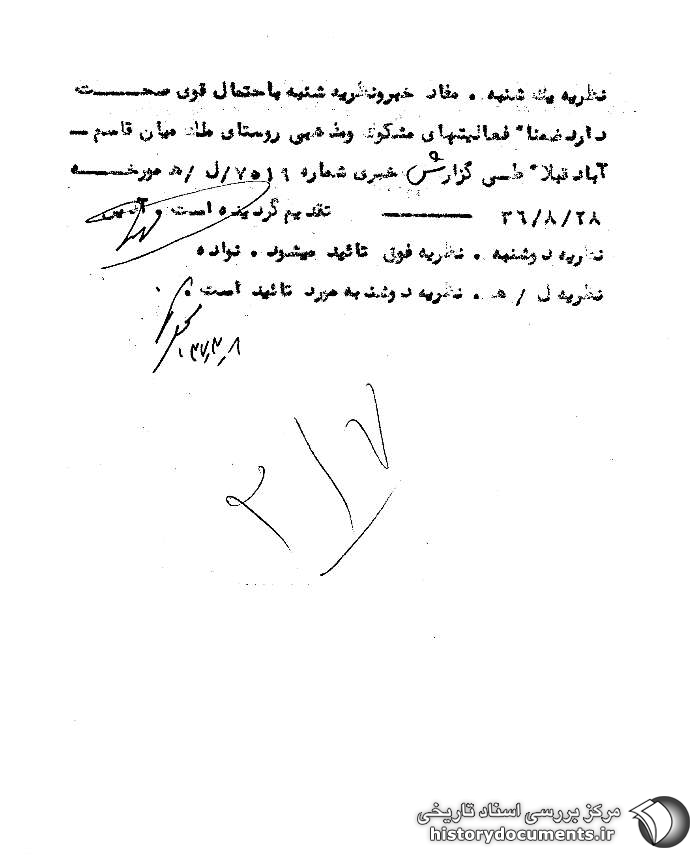 نظریه یک شنبه . مفاد خبر و نظریه شنبه باحتمال قوی صحـــــت
دارد ضمنا" فعالیتهای مشکوک و مذهبی روستای ملک میان قاسم ـ
آباد قبلا" طـی گزارش خبری شماره ۷۵۱۹/ل /هـ مورخـــــه
۳۶/۸/۲۸ ـــــــ تقدیم گردیده است .
نظریه دوشنبه . نظریه فوق تائید میشود . نواده
نظریه ل / هـ . نظریه دوشنبه مورد تائید است .
۲/۷
مرکز بررسی اسناد تاریخی
historydocuments.ir